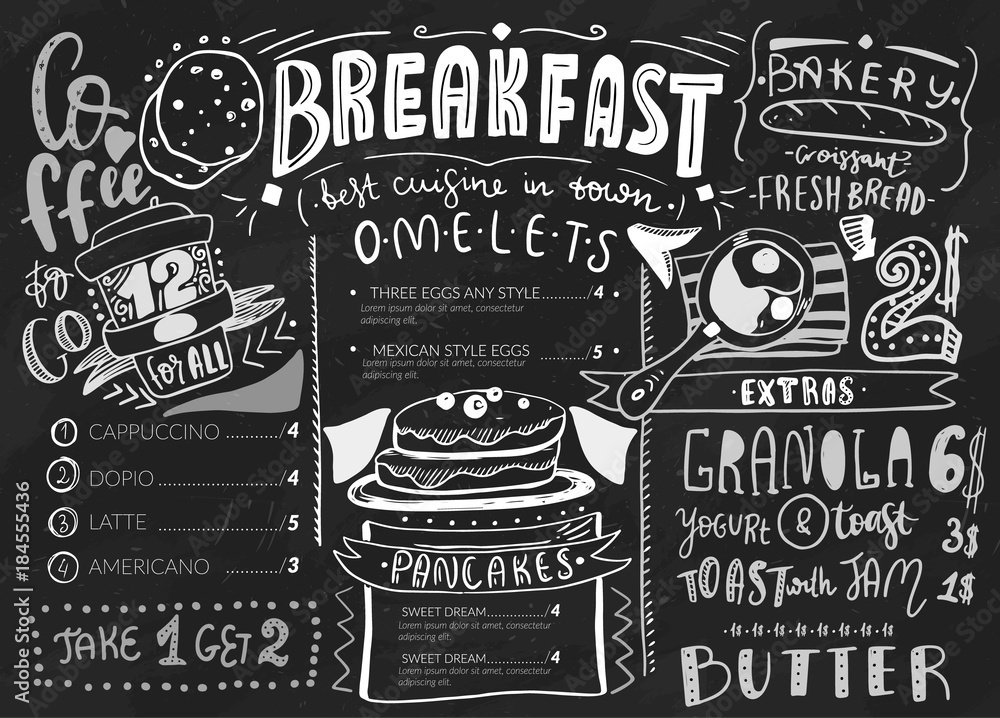 Coffee
to GO
12
for ALL
1 CAPPUCCINO ............/ 4
2 DOPIO ......................./ 4
3 LATTE ......................../ 5
4 AMERICANO ............/ 3
TAKE 1 GET 2
BREAKFAST
best cuisine in town
O.M.E.L.E.T.S
• THREE EGGS ANY STYLE............/ 4
Lorem ipsum dolor sit amet, consectetur
adipiscing elit.
• MEXICAN STYLE EGGS ............/ 5
Lorem ipsum dolor sit amet, consectetur
adipiscing elit.
• PANCAKES •
SWEET DREAM................/ 4
Lorem ipsum dolor sit amet, consectetur
adipiscing elit.
SWEET DREAM................/ 4
Lorem ipsum dolor sit amet, consectetur
adipiscing elit.
BAKERY
-Croissant-
-FRESH BREAD-
2$
EXTRAS
GRANOLA 6$
YOGURT & toast 3$
TOAST with JAM 1$
-1$-1$-1$-1$-1$-1$-1$-
BUTTER
Adobe Stock | #184555436